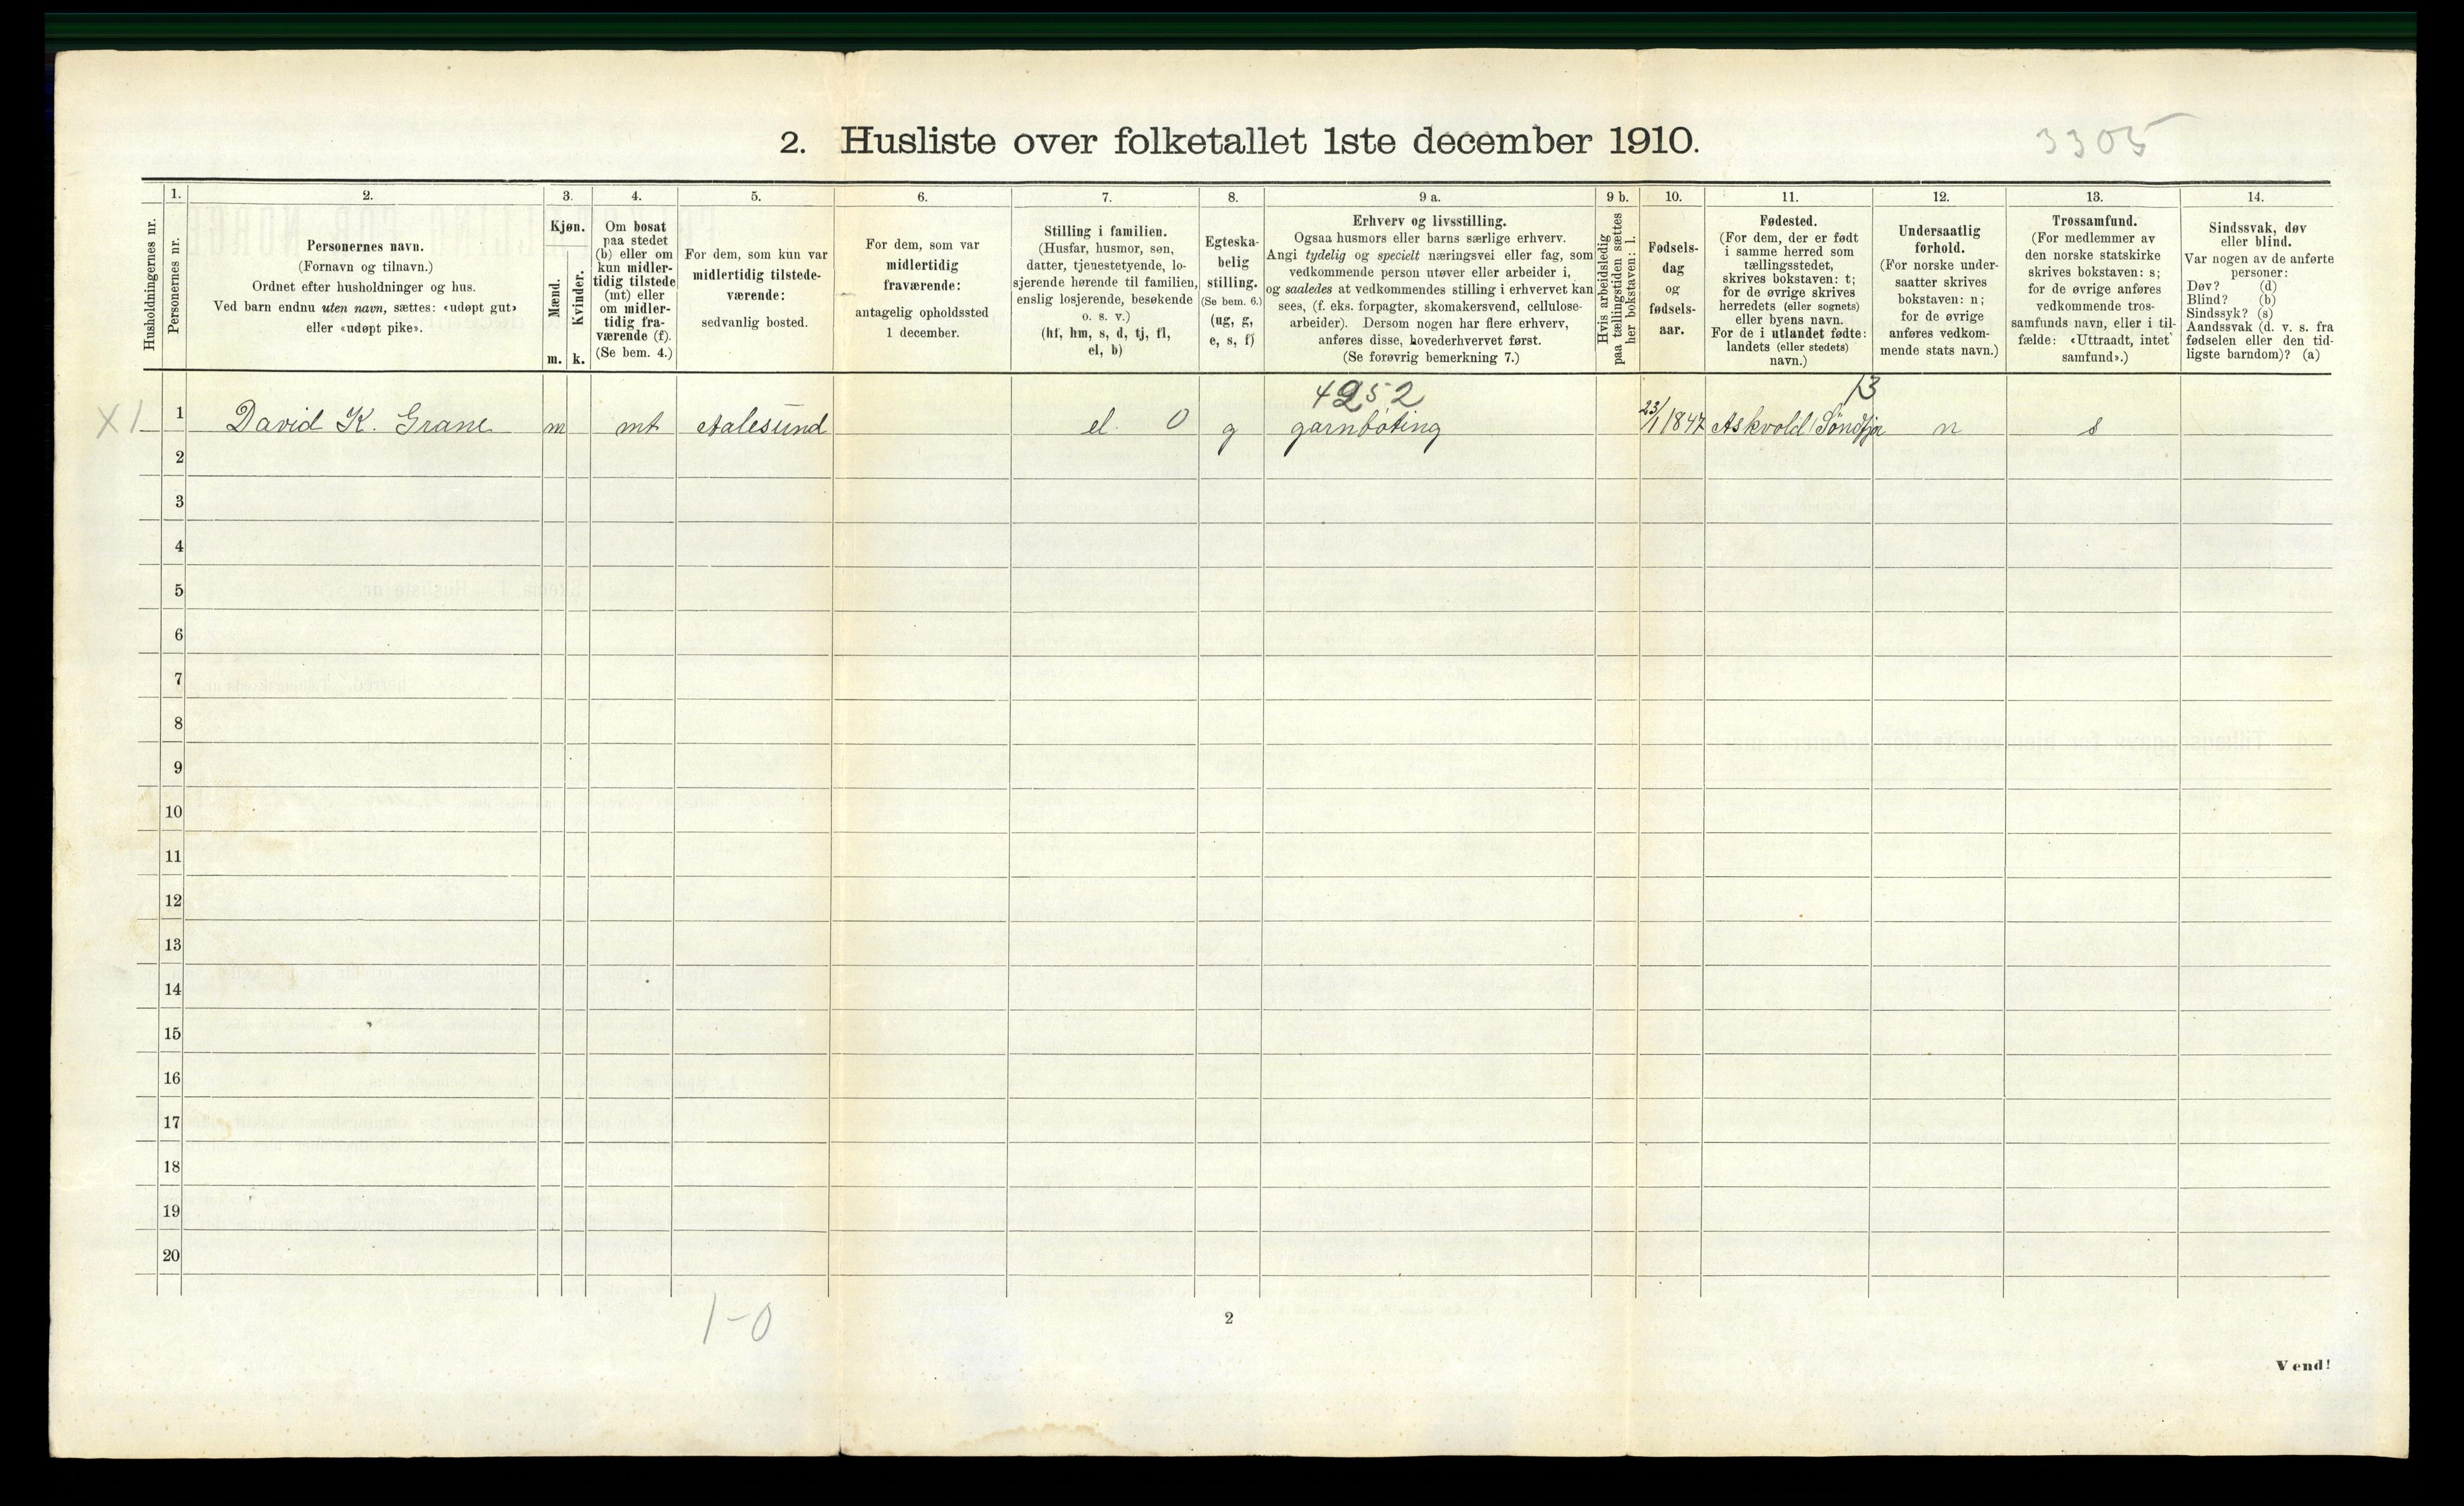 2. Husliste over folketallet 1ste december 1910.
3305
1. 2. 3. 4. 5. 6. 7. 8. 9 a. 9 b. 10. 11. 12. 13. 14.
Husholdningernes nr.
Personernes nr.
Personernes navn.
(Fornavn og tilnavn.)
Ordnet efter husholdninger og hus.
Ved barn endnu uten navn, sættes: «udøpt gut»
eller «udøpt pike».
Kjøn.
Mænd.
Kvinder.
m. k.
Om bosat
paa stedet
(b) eller om
kun midler-
tidig tilstede
(mt) eller
om midler-
tidig fra-
værende (f).
(Se bem. 4.)
For dem, som kun var
midlertidig tilstede-
værende:
sedvanlig bosted.
For dem, som var
midlertidig
fraværende:
antagelig opholdssted
1 december.
Stilling i familien.
(Husfar, husmor, søn,
datter, tjenestetyende, lo-
sjerende hørende til familien,
enslig losjerende, besøkende
o. s. v.)
(hf, hm, s, d, tj, fl,
el, b)
Egteska-
belig
stilling.
(Se bem. 6.)
(ug, g,
e, s, f)
Erhverv og livsstilling.
Ogsaa husmors eller barns særlige erhverv.
Angi tydelig og specielt næringsvei eller fag, som
vedkommende person utøver eller arbeider i,
og saaledes at vedkommendes stilling i erhvervet kan
sees, (f. eks. forpagter, skomakersvend, cellulose-
arbeider). Dersom nogen har flere erhverv,
anføres disse, hovederhvervet først.
(Se forøvrig bemerkning 7.)
Hvis arbeidsledig
paa tællingstiden sættes
her bokstaven: l.
Fødsels-
dag
og
fødsels-
aar.
Fødested.
(For dem, der er født
i samme herred som
tællingsstedet,
skrives bokstaven: t;
for de øvrige skrives
herredets (eller sognets)
eller byens navn.
For de i utlandet fødte:
landets (eller stedets)
navn.)
Undersaatlig
forhold.
(For norske under-
saatter skrives
bokstaven: n;
for de øvrige
anføres vedkom-
mende stats navn.)
Trossamfund.
(For medlemmer av
den norske statskirke
skrives bokstaven: s;
for de øvrige anføres
vedkommende tros-
samfunds navn, eller i til-
fælde: «Uttraadt, intet
samfund».)
Sindssvak, døv
eller blind.
Var nogen av de anførte
personer:
Døv? (d)
Blind? (b)
Sindssyk? (s)
Aandssvak (d. v. s. fra
fødselen eller den tid-
ligste barndom)? (a)
4252 13
X 1 1 David K. Grane m mt Aalesund el. 0 g garnbøting 23/1 1847 Askvold Søndfjor n s
2
3
4
5
6
7
8
9
10
11
12
13
14
15
16
17
18
19
20
1-0
2
Vend!